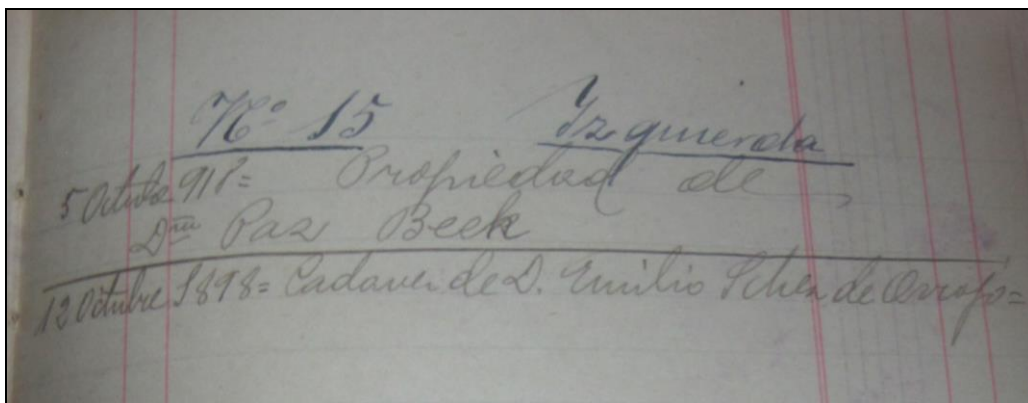 Nº 15 Izquierda
5 Octubre 918= Propiedad de
Dña Paz Beek
12 Octubre 1898= Cadaver de D. Emilio de